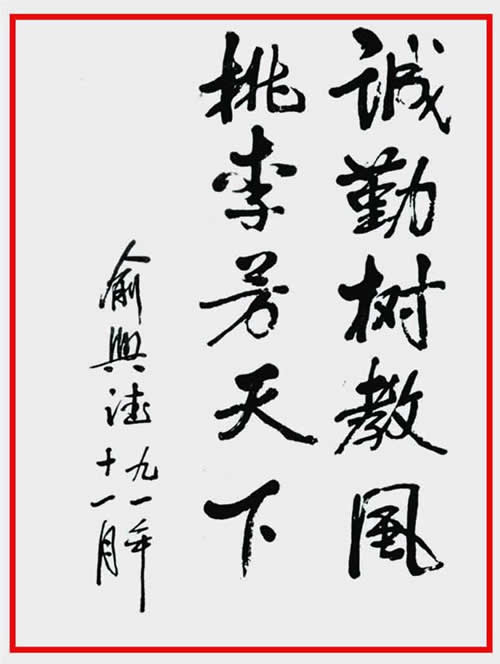 誠勤树教風
桃李芳天下
俞興德
九一年
十一月